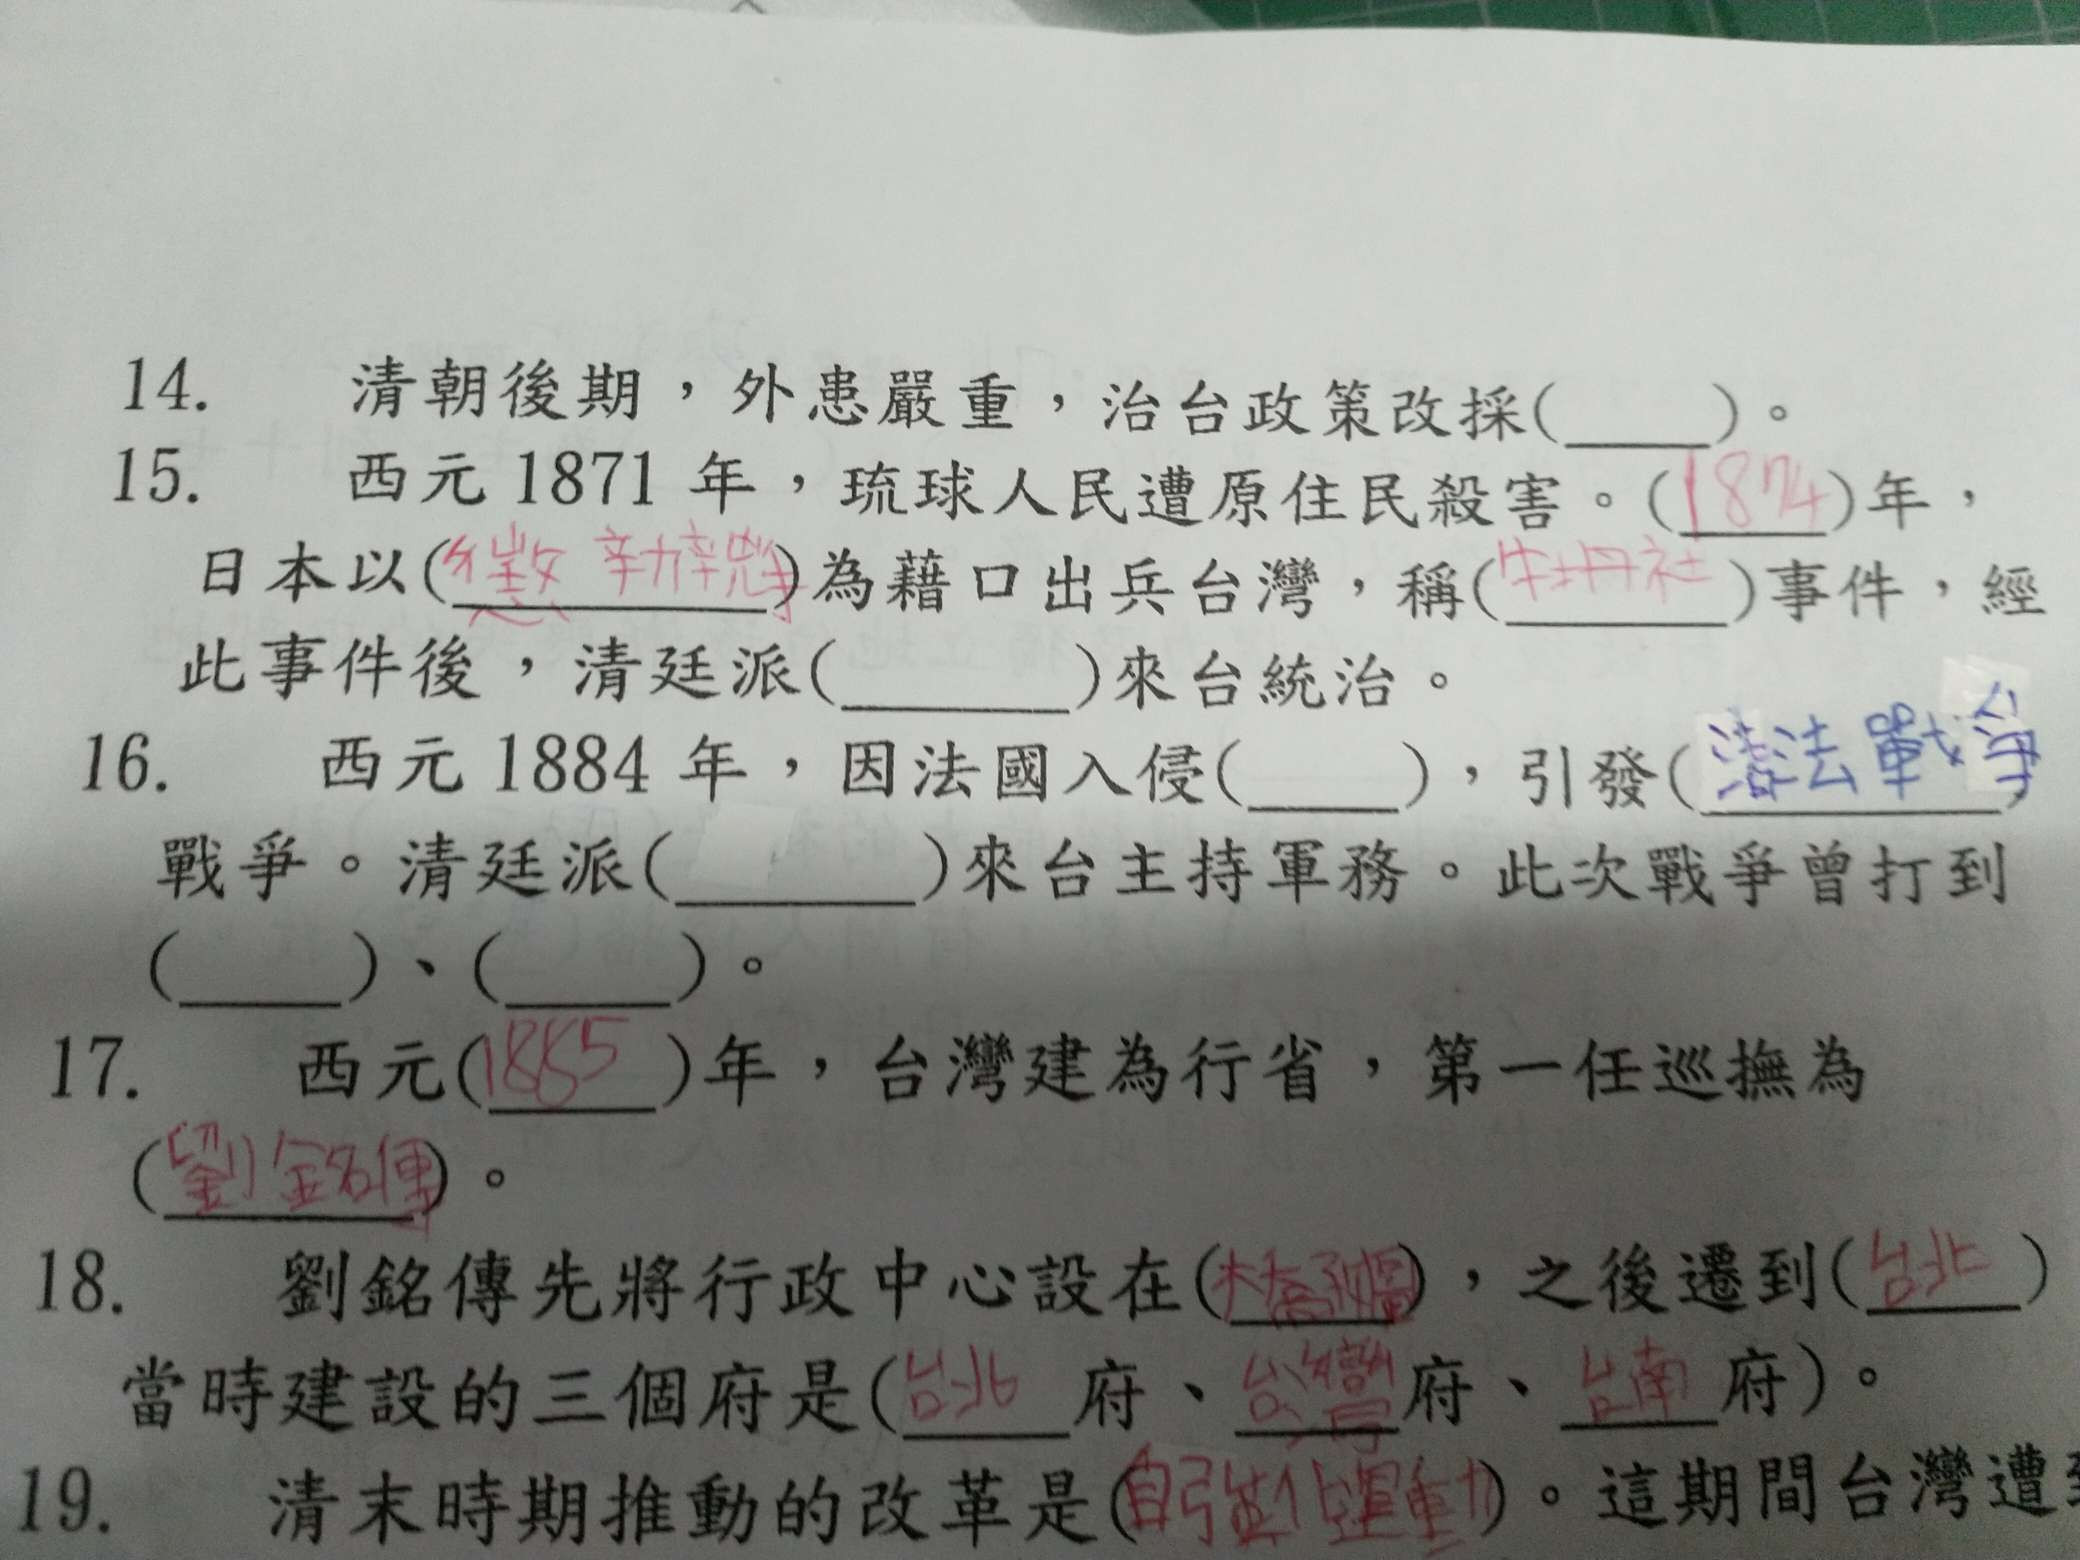 14. 清朝後期，外患嚴重，治台政策改採(____)。
15. 西元 1871 年，琉球人民遭原住民殺害。(1874)年，
日本以(懲 辦)為藉口出兵台灣，稱(牡丹社)事件，經
此事件後，清廷派(______)來台統治。
16. 西元 1884 年，因法國入侵(____)，引發(清法戰爭)
戰爭。清廷派(______)來台主持軍務。此次戰爭曾打到
(____)、(____)。
17. 西元(1885)年，台灣建為行省，第一任巡撫為
(劉銘傳)。
18. 劉銘傳先將行政中心設在(橋孜圖)，之後遷到(台北)
當時建設的三個府是(台北府、台灣府、台南府)。
19. 清末時期推動的改革是(自強運動)。這期間台灣遭